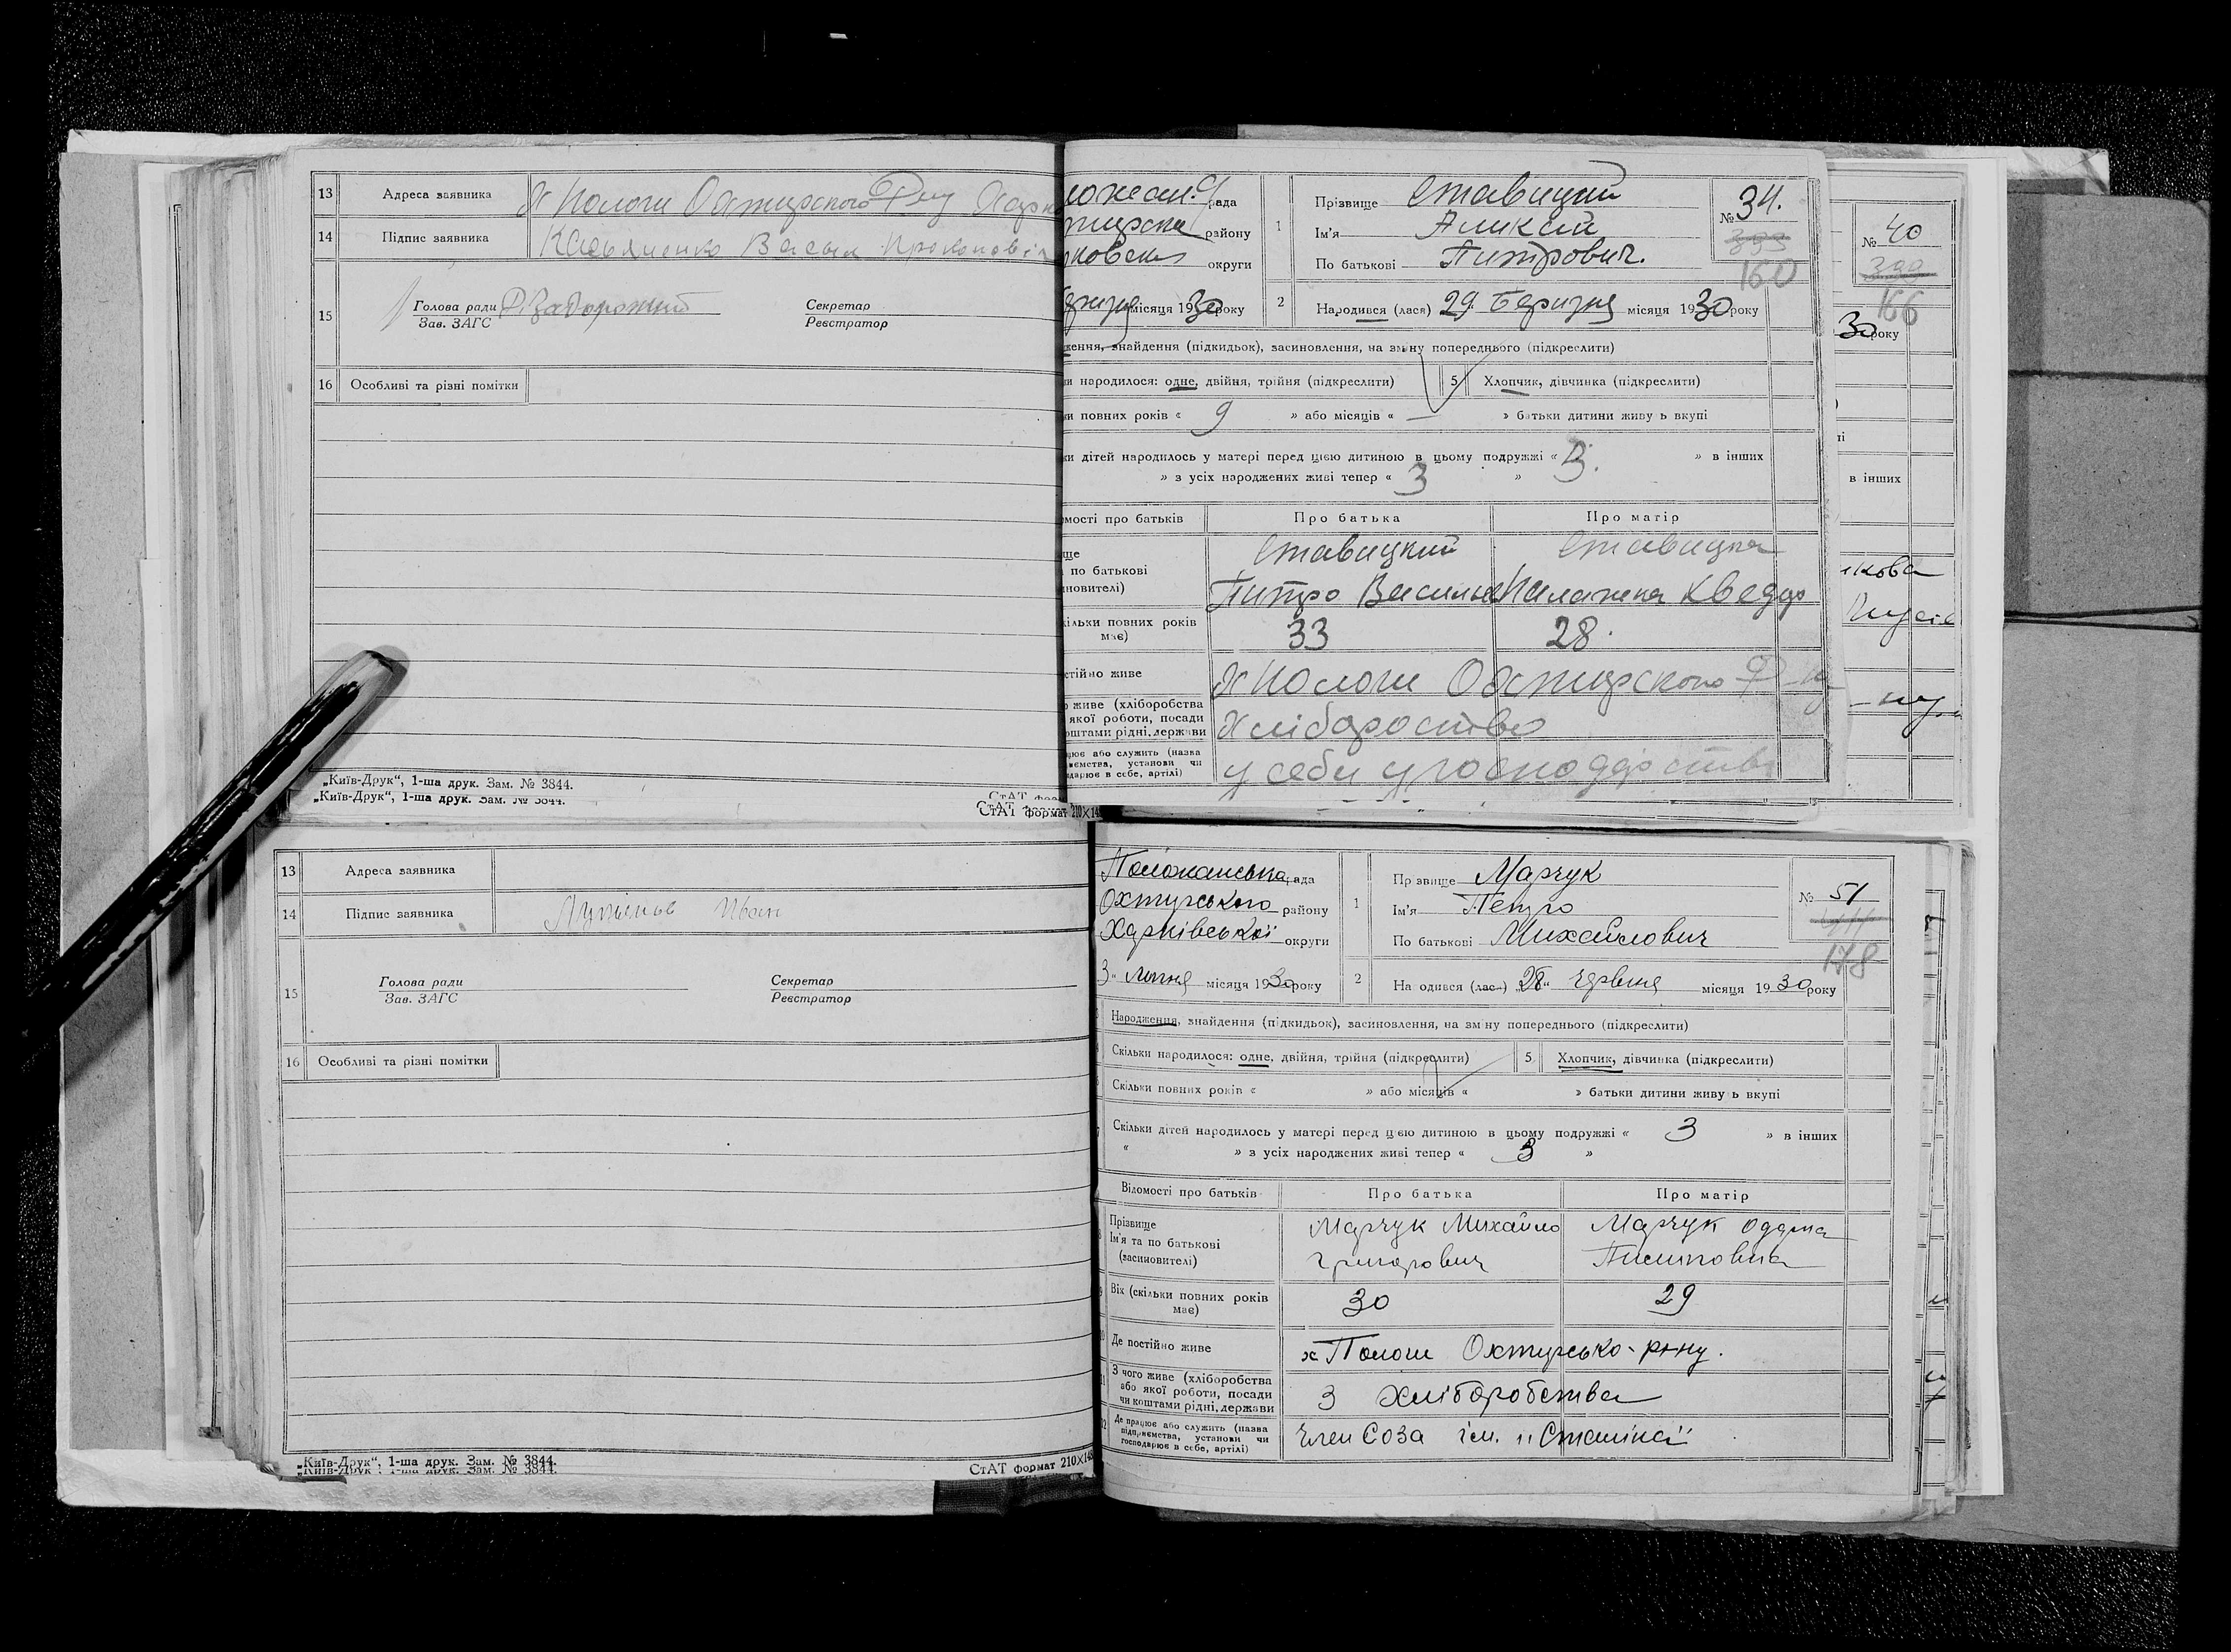 13 Адреса заявника х Пологи Охтирского Р-ну Харк
14 Підпис заявника Василь
15 Голова ради Секретар
Зав. ЗАГС Реєстратор
16 Особливі та різні помітки
„Київ-Друк“, 1-ша друк. Зам. № 3844.
„Київ-Друк“, 1-ша друк. Зам. № 3844.
СтАТ формат 210×14
рада
району
округи
місяця 1930 року
1 Прізвище Ставицкий
Ім'я Аликсій
По батькові Питрович.
№ 34.
160
2 Народився (лася) 29 Беризня місяця 1930 року
ження, знайдення (підкидьок), засиновлення, на зміну попереднього (підкреслити)
и народилося: одне, двійня, трійня (підкреслити) 5 Хлопчик, дівчинка (підкреслити)
и повних років « 9 » або місяців « — » батьки дитини живу ь вкупі
ки дітей народилось у матері перед цією дитиною в цьому подружжі « 3. » в інших
» з усіх народжених живі тепер « 3 »
мості про батьків Про батька Про матір
ще Ставицкий Ставицка
по батькові
новителі) Питро Василь
кільки повних років має) 33 28.
стійно живе х Пологи Охтирского Р-ну
о живе (хліборобства
якої роботи, посади
оштами рідні, держави Хлібороство
цює або служить (назва
иємства, установи чи
дарює в себе, артілі) у себи у господарстві
№ 40
166
30 року
в інших
кова
13 Адреса заявника
14 Підпис заявника Иван
15 Голова ради Секретар
Зав. ЗАГС Реєстратор
16 Особливі та різні помітки
„Київ-Друк“, 1-ша друк. Зам. № 3844.
СтАТ формат 210×148
Положанська рада
Охтирського району
Харківської округи
3" липня місяця 1930 року
1 Прізвище Марчук
Ім'я Петро
По батькові Михайлович
№ 51
178
2 На одився (лас-) 28" червня місяця 1930 року
Народження, знайдення (підкидьок), засиновлення, на зміну попереднього (підкреслити)
Скільки народилося: одне, двійня, трійня (підкреслити) 5 Хлопчик, дівчинка (підкреслити)
Скільки повних років « » або місяців « » батьки дитини живу ь вкупі
Скільки дітей народилось у матері перед цією дитиною в цьому подружжі « 3 » в інших
« » з усіх народжених живі тепер « 3 »
Відомості про батьків Про батька Про матір
Прізвище Марчук Михайло Марчук
Ім'я та по батькові
(засиновителі) Григорович
Вік (скільки повних років має) 30 29
Де постійно живе х Пологи Охтирсько-р-ну.
З чого живе (хліборобства
або якої роботи, посади
чи коштами рідні, держави З хліборобства
Де працює або служить (назва
підприємства, установи чи
господарює в себе, артілі) Член Соза ім. „Сталіна"